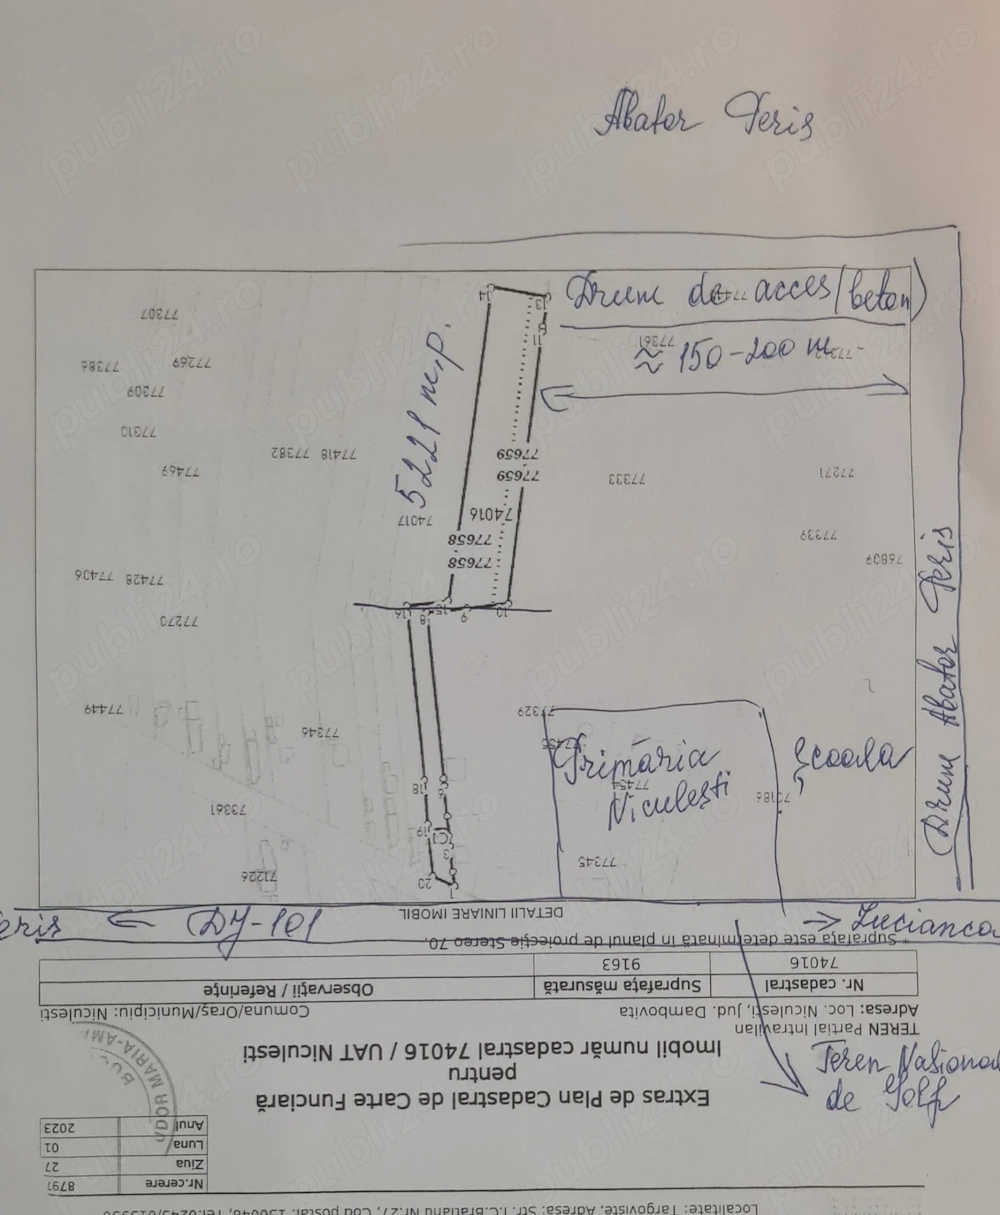 Abator Peris
Drum de acces (beton)
≈ 150-200 m
5221 m.p.
Drum Abator Peris
Primăria
Niculești
Școala
DJ-101
Teren Național
de Golf
77307
77386
77269
77309
77469
77382
77418
74017
77361
77659
77659
74016
77658
77658
77333
77271
77339
77428
77270
77449
77346
73361
71226
77329
77454
77345
14
13
11
16
15
8
9
10
18
6
19
C1
3
20
1
DETALII LINIARE IMOBIL
* Suprafața este determinată în planul de proiecție Stereo 70.
74016
9163
Nr. cadastral
Suprafața măsurată
Observații / Referințe
Adresa: Loc. Niculești, jud. Dambovita
Comuna/Oraș/Municipiu: Niculesti
TEREN Partial Intravilan
Imobil număr cadastral 74016 / UAT Niculesti
pentru
Extras de Plan Cadastral de Carte Funciară
Anul 2023
Luna 01
Ziua 27
Nr.cerere 8797
publi24.ro